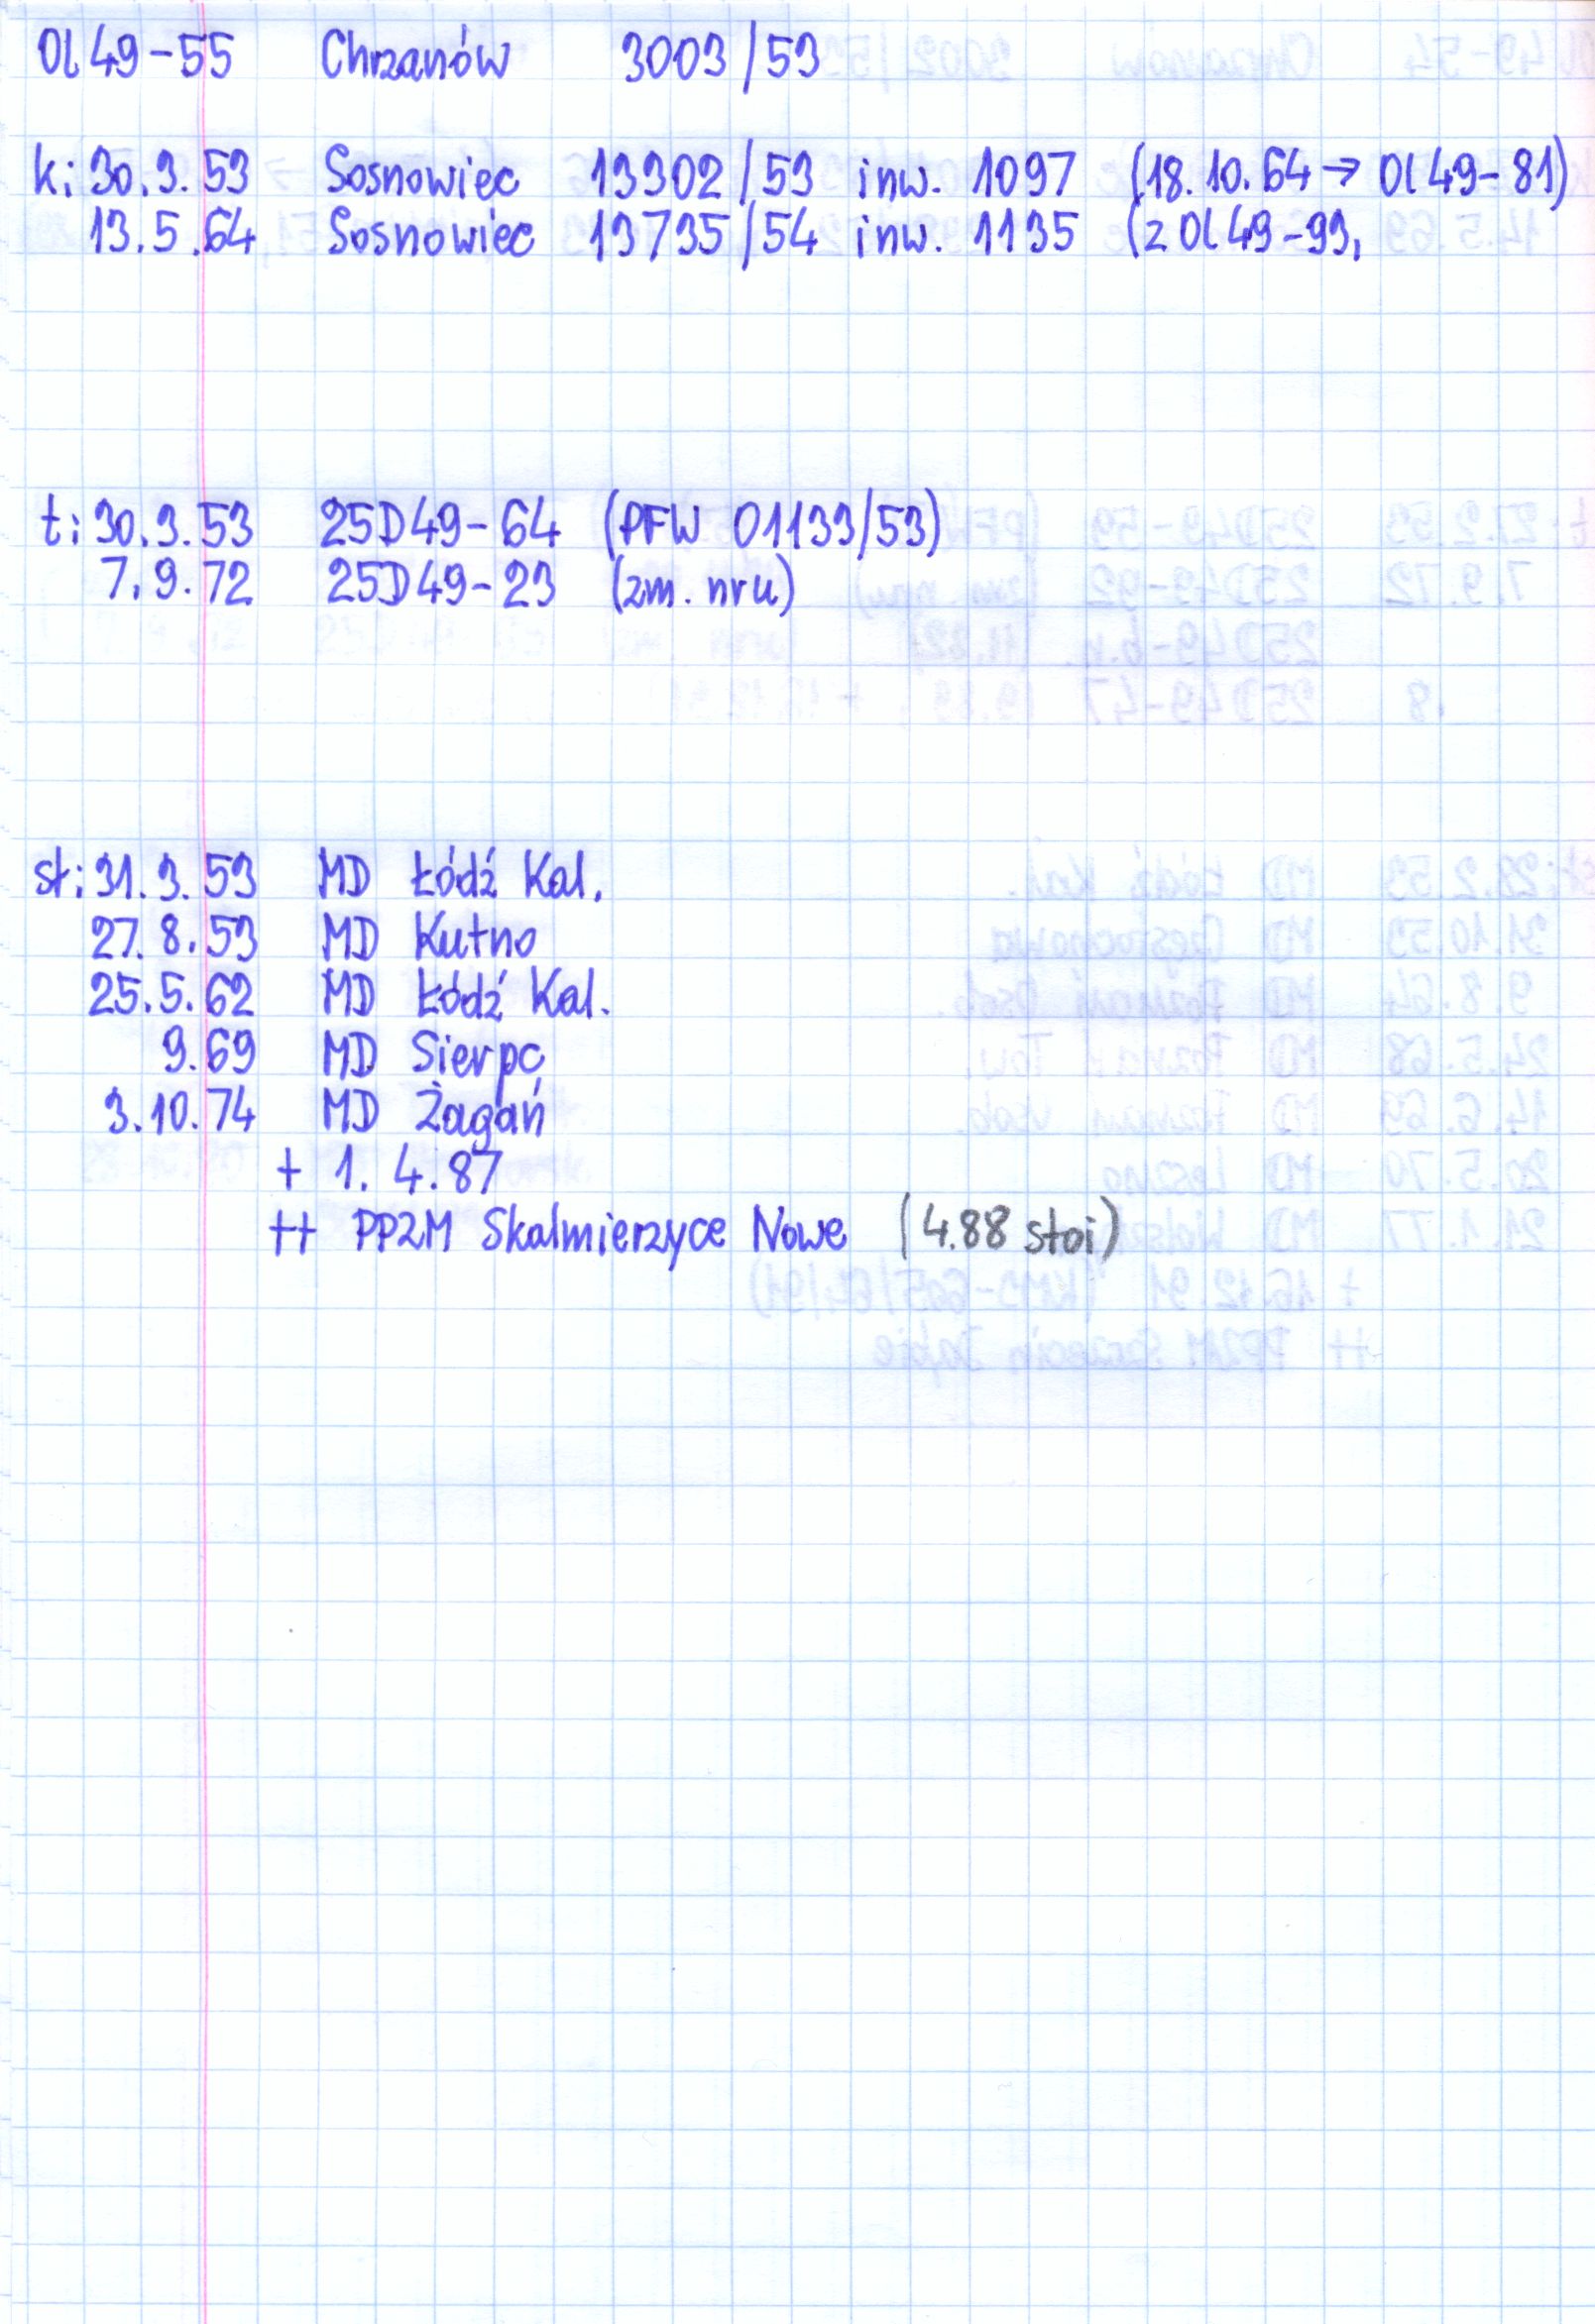 Ol 49-55 Chrzanów 3003/53
k: 30.3.53 Sosnowiec 13302/53 inw. 1097 (18.10.64 → Ol 49-81)
13.5.64 Sosnowiec 13735/54 inw. 1135 (z Ol 49-99,
t: 30.3.53 25D49-64 (PFW 01133/53)
7.9.72 25D49-23 (zm. nru)
st: 31.3.53 MD Łódź Kal.
27.8.53 MD Kutno
25.5.62 MD Łódź Kal.
9.69 MD Sierpc
3.10.74 MD Żagań
+ 1.4.87
++ PPZM Skalmierzyce Nowe (4.88 stoi)